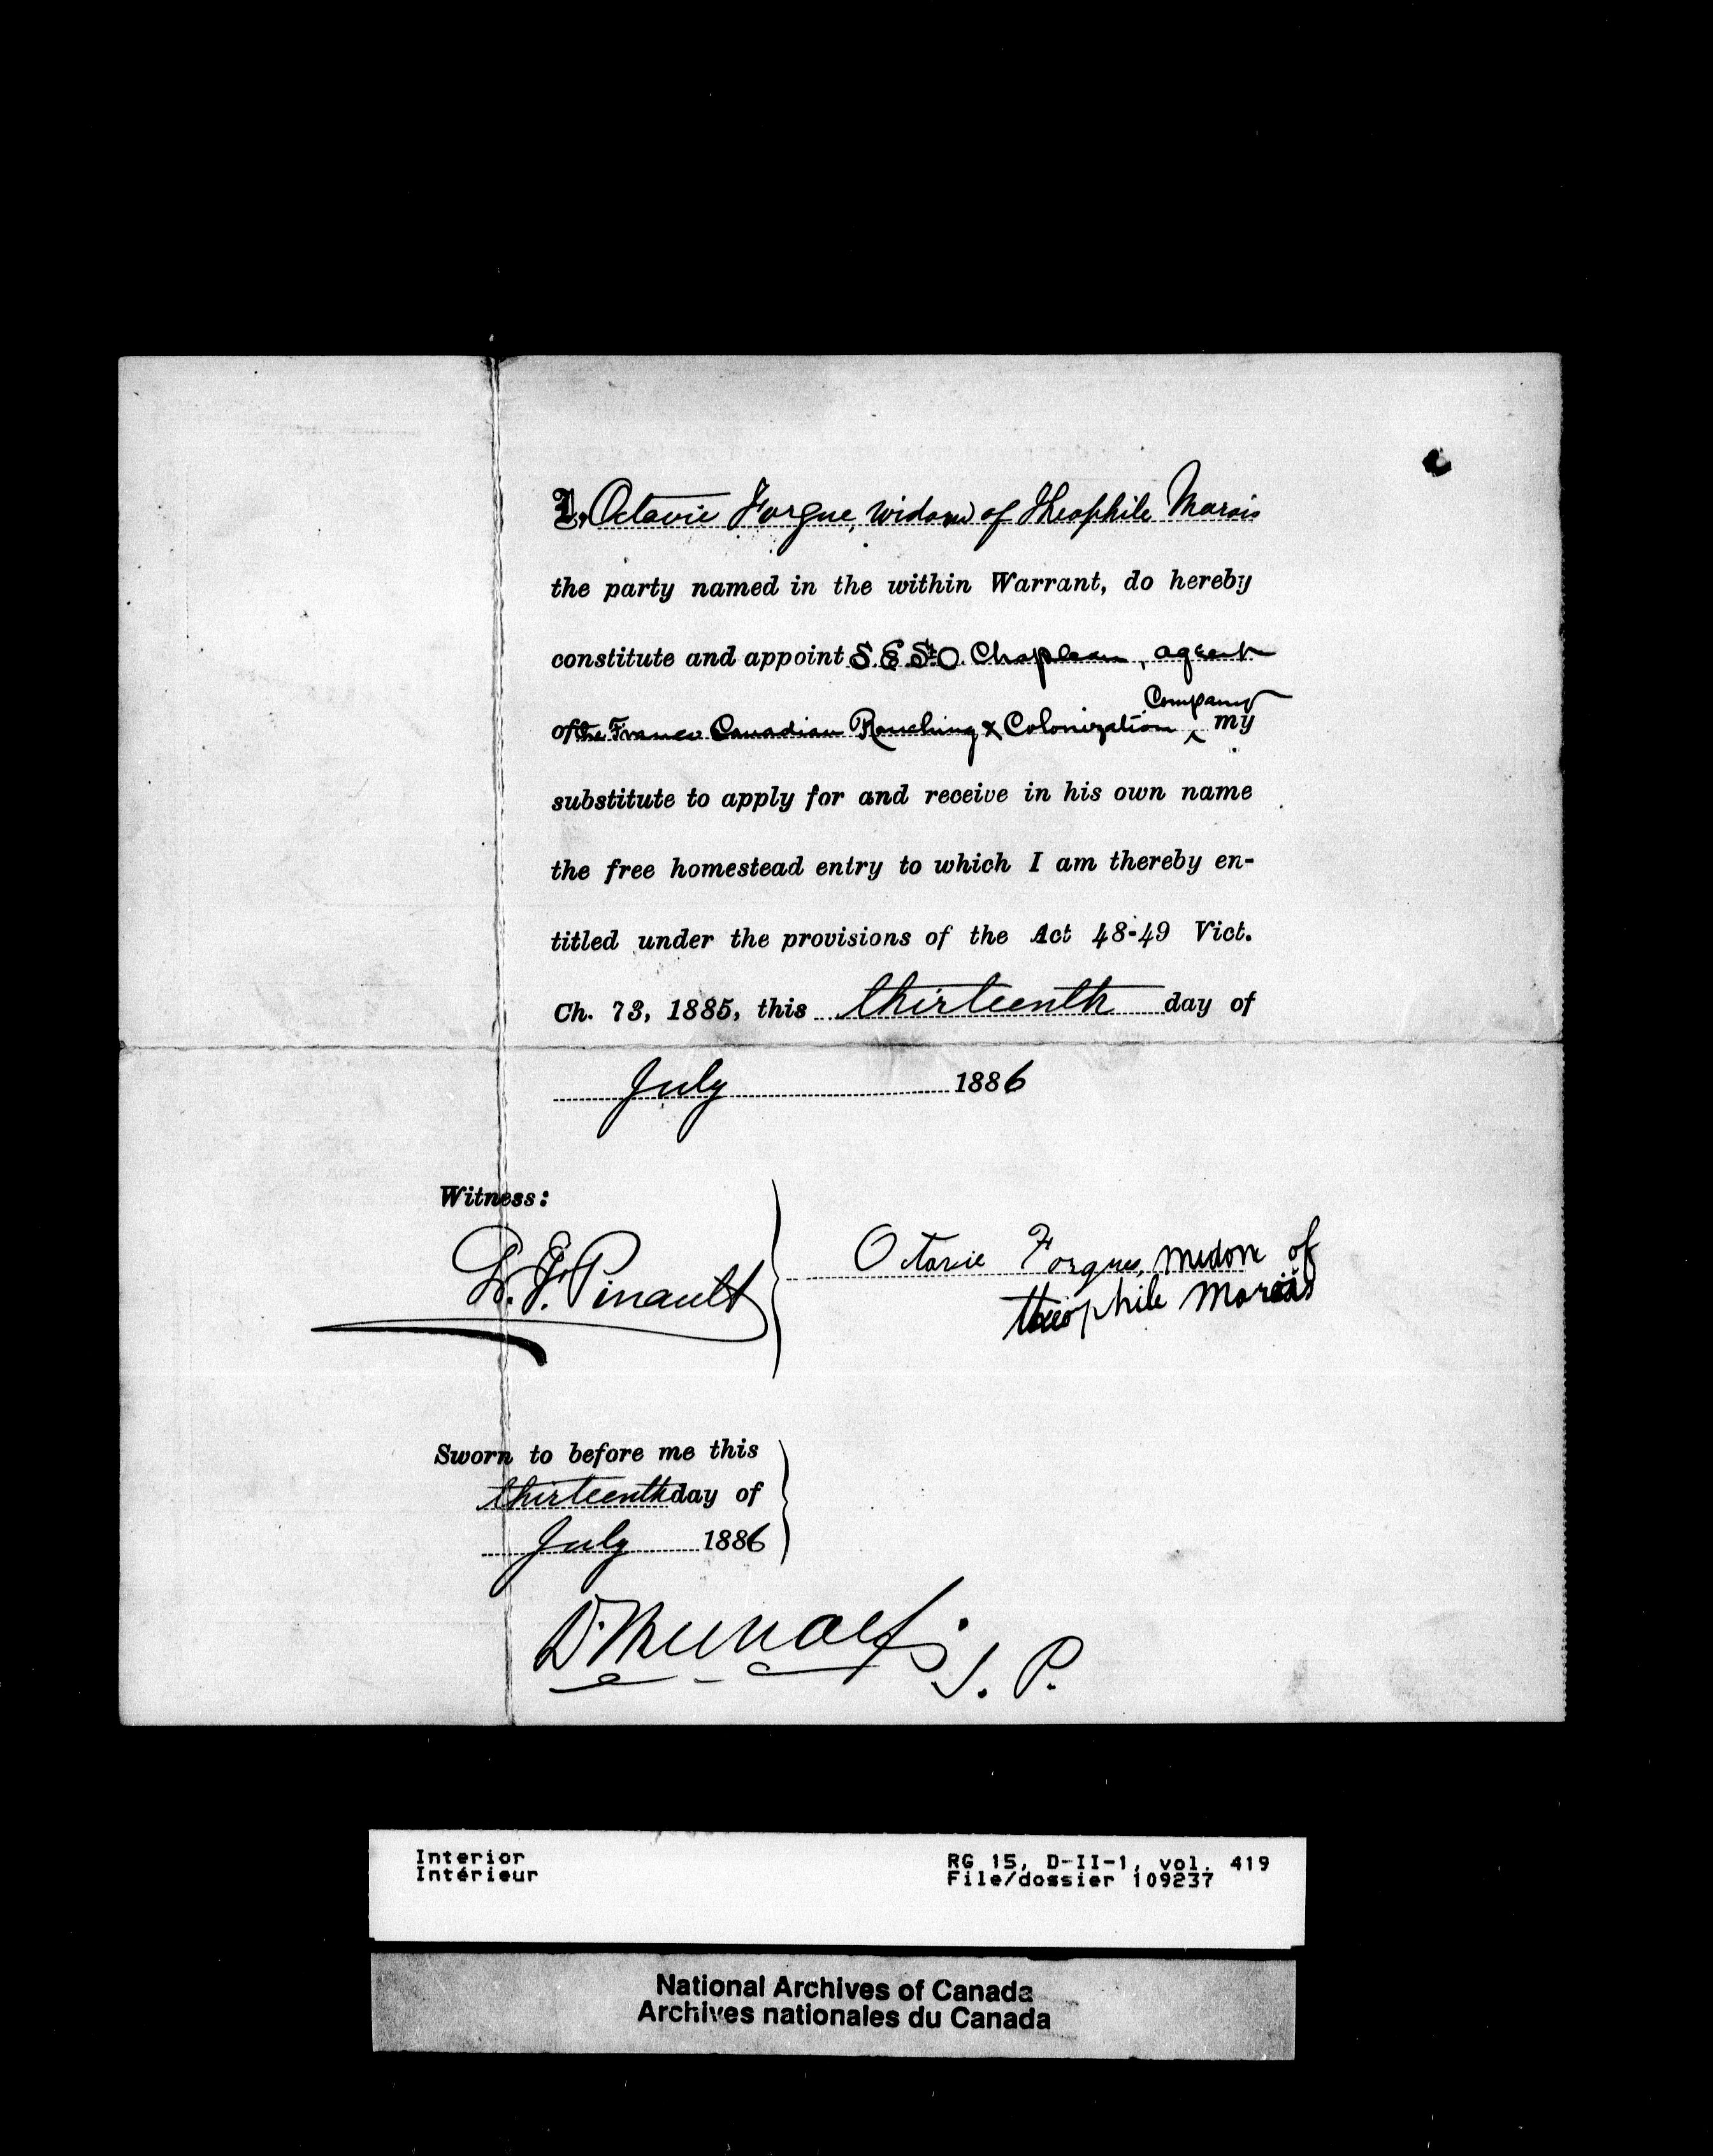 I, Octavie Forgue, widow of Theophile Marois
the party named in the within Warrant, do hereby
constitute and appoint S. E. St O. Chapleau, agent
of the Franco Canadian Ranching & Colonization ^ Company my
substitute to apply for and receive in his own name
the free homestead entry to which I am thereby en-
titled under the provisions of the Act 48-49 Vict.
Ch. 73, 1885, this thirteenth day of
July 1886
Witness:
L. F. Pinault
Octavie Forgues, of
theophile Marois
Sworn to before me this
thirteenth day of
July 1886
J. P.
Interior
Intérieur
RG 15, D-II-1, vol. 419
File/dossier 109237
National Archives of Canada
Archives nationales du Canada